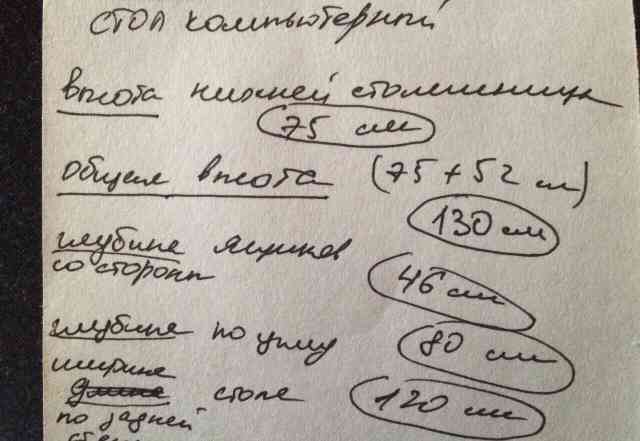 стол компьютерный
высота нижней столешницы
75 см
общая высота (75 + 52 см)
130 см
глубина ящиков
со стороны
46 см
глубина по углу
80 см
ширина
длина стола
120 см
по задней